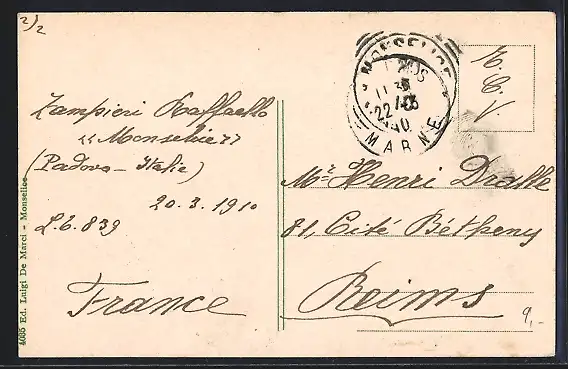 2/2
Zampieri Raffaello
"Monselice"
(Padova - Italie)
20.3.1910
L.C. 839
France
4085 Ed. Luigi De Marci - Monselice
MONSELICE
22
MARNE
T.C.V.
Mr. Henri Dralle
81, Cité Bétheny
Reims
9,-